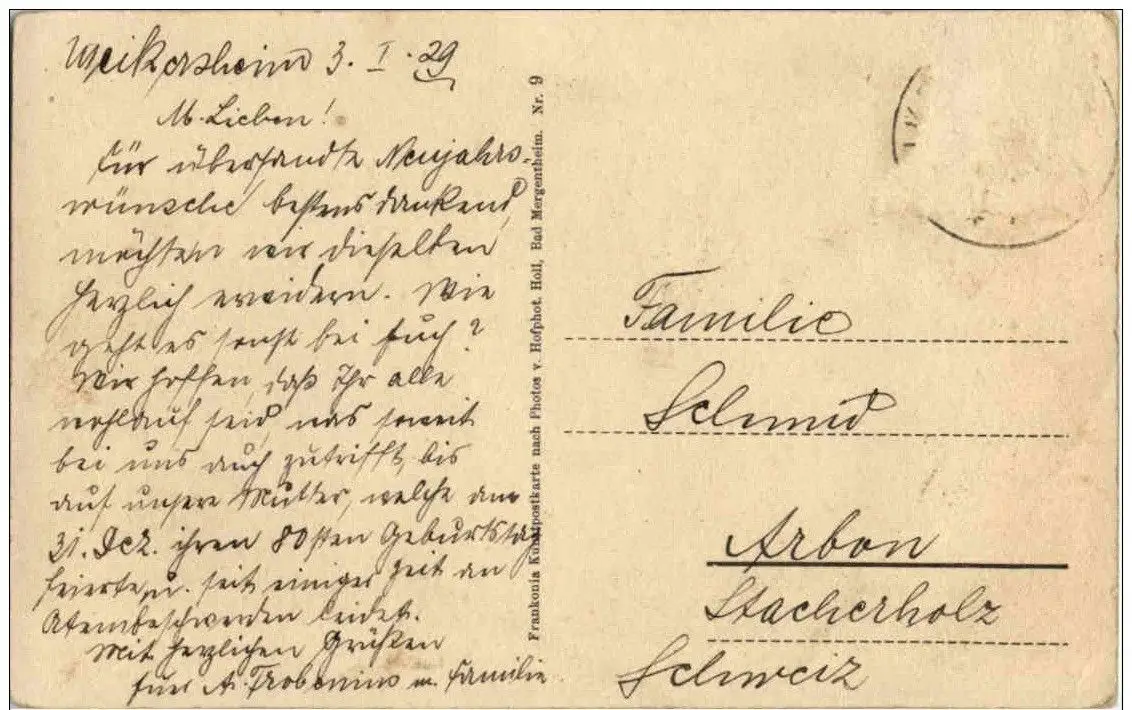 Weikersheim 3. I. 29
M. Lieben!
Für übersandte Neujahrs-
wünsche bestens dankend,
möchten wir dieselben
herzlich erwidern. Wie
geht es sonst bei Euch?
Wir hoffen, daß Ihr alle
wohlauf seid, was soweit
bei uns auch zutrifft, bis
auf unsere Mutter, welche am
31. Dez. ihren 80sten Geburtstag
feierte, u. seit einiger Zeit an
Atembeschwerden leidet.
Mit herzlichen Grüßen
Euer A. m. Familie
Frankonia Kunstpostkarte nach Photos v. Hofphot. Holl, Bad Mergentheim. Nr. 9
Familie
Schmid
Arbon
Stacherholz
Schweiz